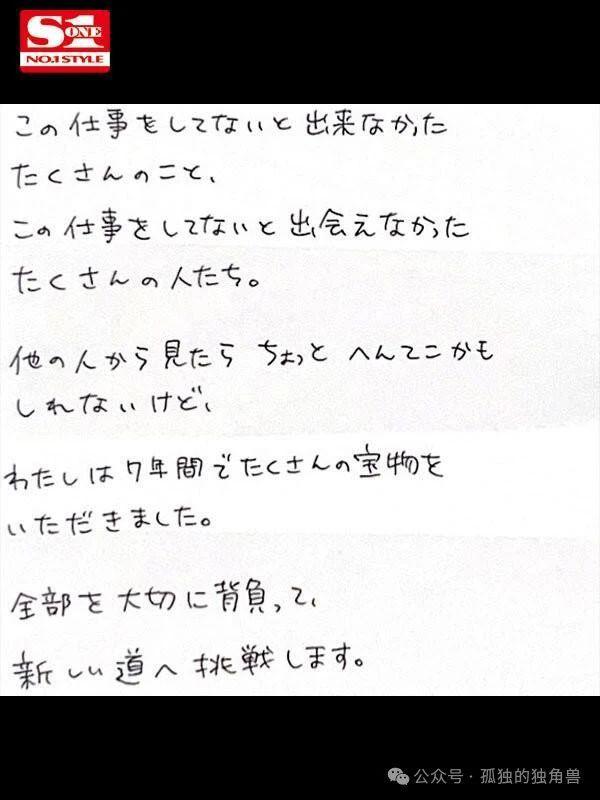 S1
ONE
NO.1 STYLE
この仕事をしてないと出来なかった
たくさんのこと、
この仕事をしてないと出会えなかった
たくさんの人たち。
他の人から見たらちょっとへんてこかも
しれないけど、
わたしは7年間でたくさんの宝物を
いただきました。
全部を大切に背負って、
新しい道へ挑戦します。
公众号·孤独的独角兽